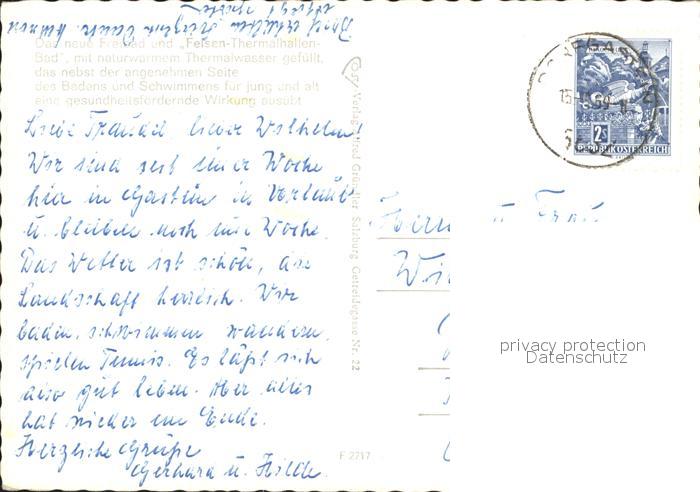 Das neue Freibad und „Felsen-Thermalhallen-
Bad", mit naturwarmem Thermalwasser gefüllt,
das nebst der angenehmen Seite
des Badens und Schwimmens für jung und alt
eine gesundheitsfördernde Wirkung ausübt
Liebe Traudel, lieber Wilhelm!
Wir sind seit einer Woche
hier in Gastein in Verlauf
u. bleiben noch eine Woche.
Das Wetter ist schön, die
Landschaft herrlich. Wir
baden, schwimmen, wandern,
spielen Tennis. Es läßt sich
also gut leben. Aber alles
hat wieder ein Ende.
Herzliche Grüße
Gerhard u. Hilde.
Salzburg, Getreidegasse Nr. 22
F 2717
2S
REPUBLIK ÖSTERREICH
Herrn u Frau
privacy protection
Datenschutz